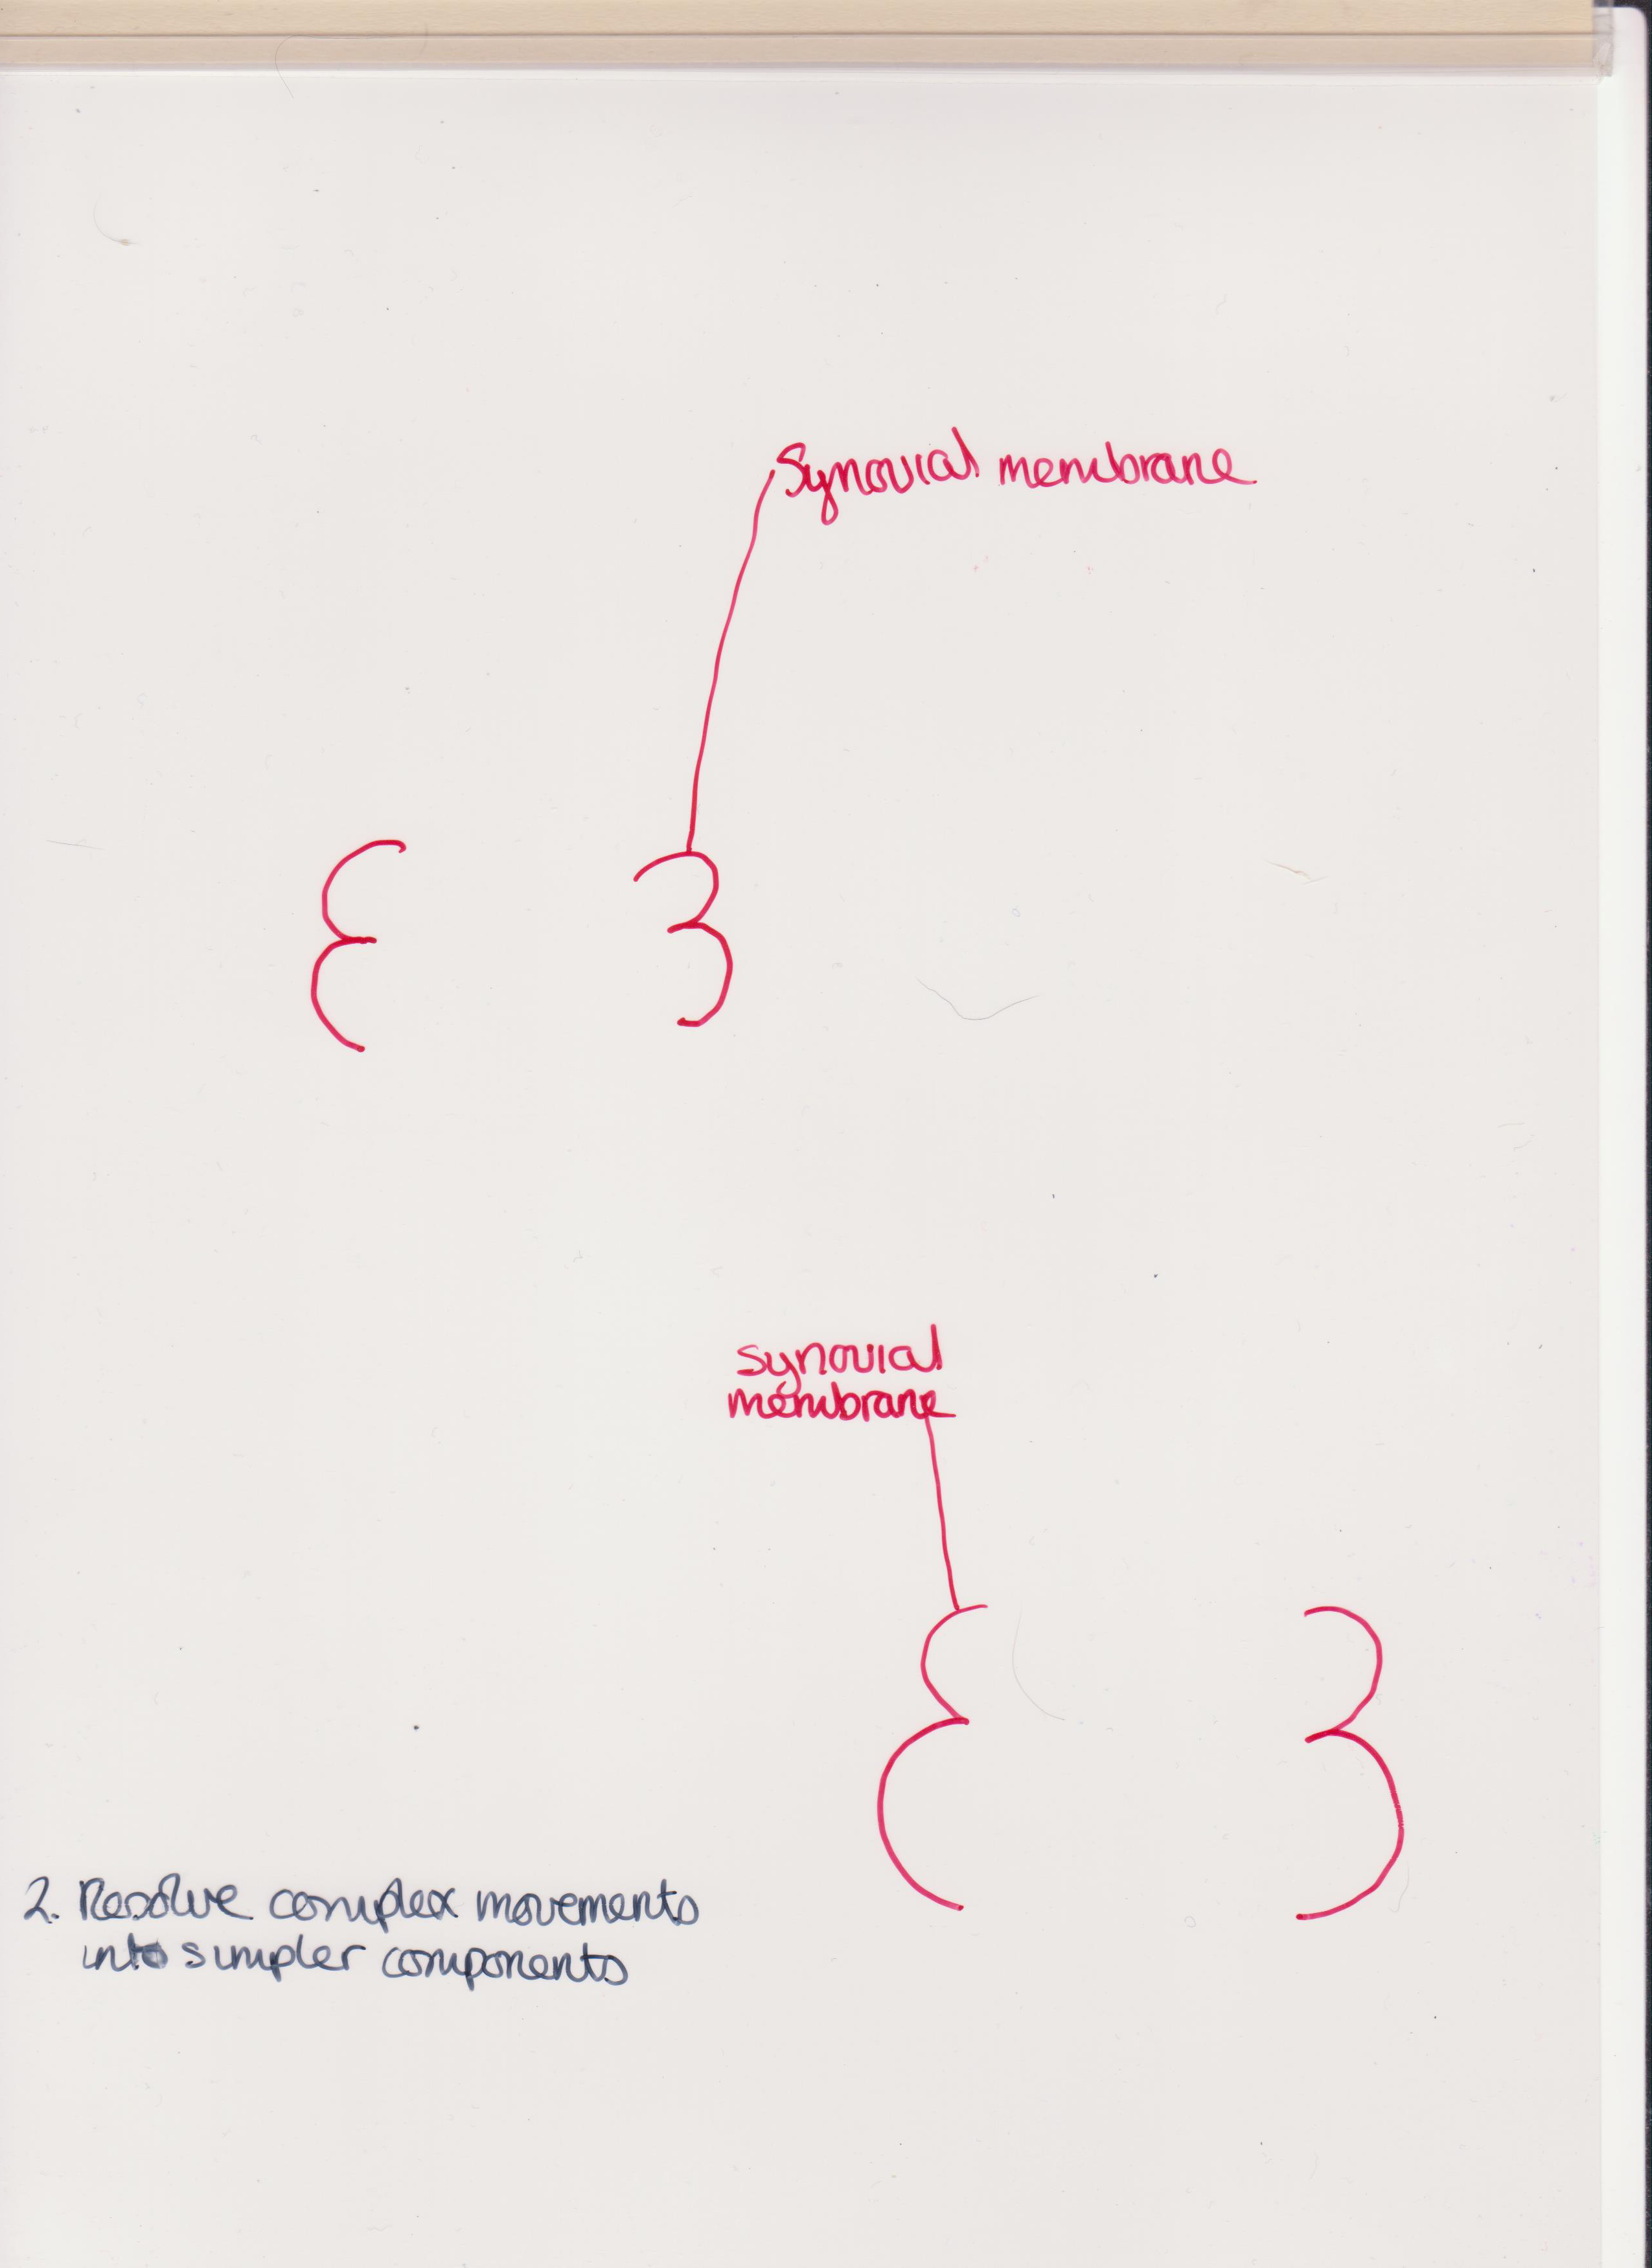 Synovial membrane
synovial
membrane
2. Resolve complex movements
into simpler components